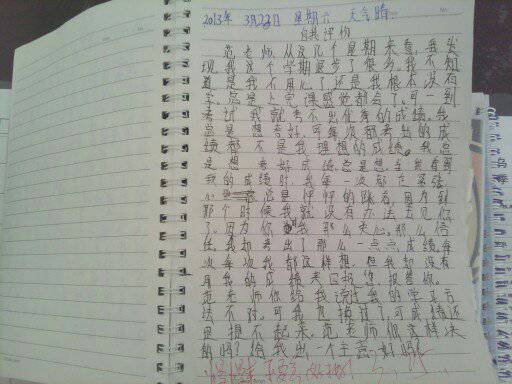 2013年 3月23日 星期六 天气晴.
自我评价
范老师从这几个星期来看,我发
现我这个学期退步了很多,我不知
道是我不用心了还是我根本没有
学,总是上完课感觉都会了,可一到
考试我就考不出优秀的成绩,我
总是想考好,可每次都考出的成
绩都不是我理想的成绩。我总
是想考好成绩,总是想,当我看到
我的成绩时,我每一次都在紧张,
心里总是怦怦的跳着,因为到
那个时候我就没有办法去见你
了,因为你对我那么关心,那么信
任,我却考出了那么一点点成绩,每
次每次我都这样想,但我却没有
用我的成绩来回报您,报答你。
范老师你给我说过我的学习方
法不对,可我也换过了,可成绩还
是提不起来,范老师你怎样決
的吗?给我出一个主意好吗?